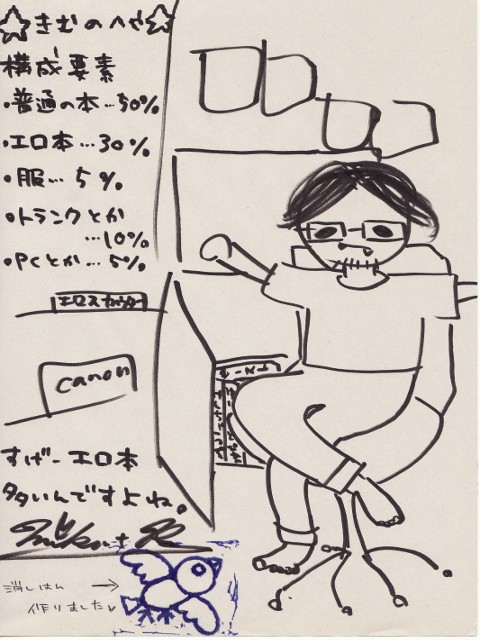 ☆きむのへや☆
構成要素
・普通の本…50%
・エロ本…30%
・服…5%
・トランクとか
…10%
・PCとか…5%
エロスカウター
canon
すげーエロ本
多いんですよね。
消しはん →
作りました